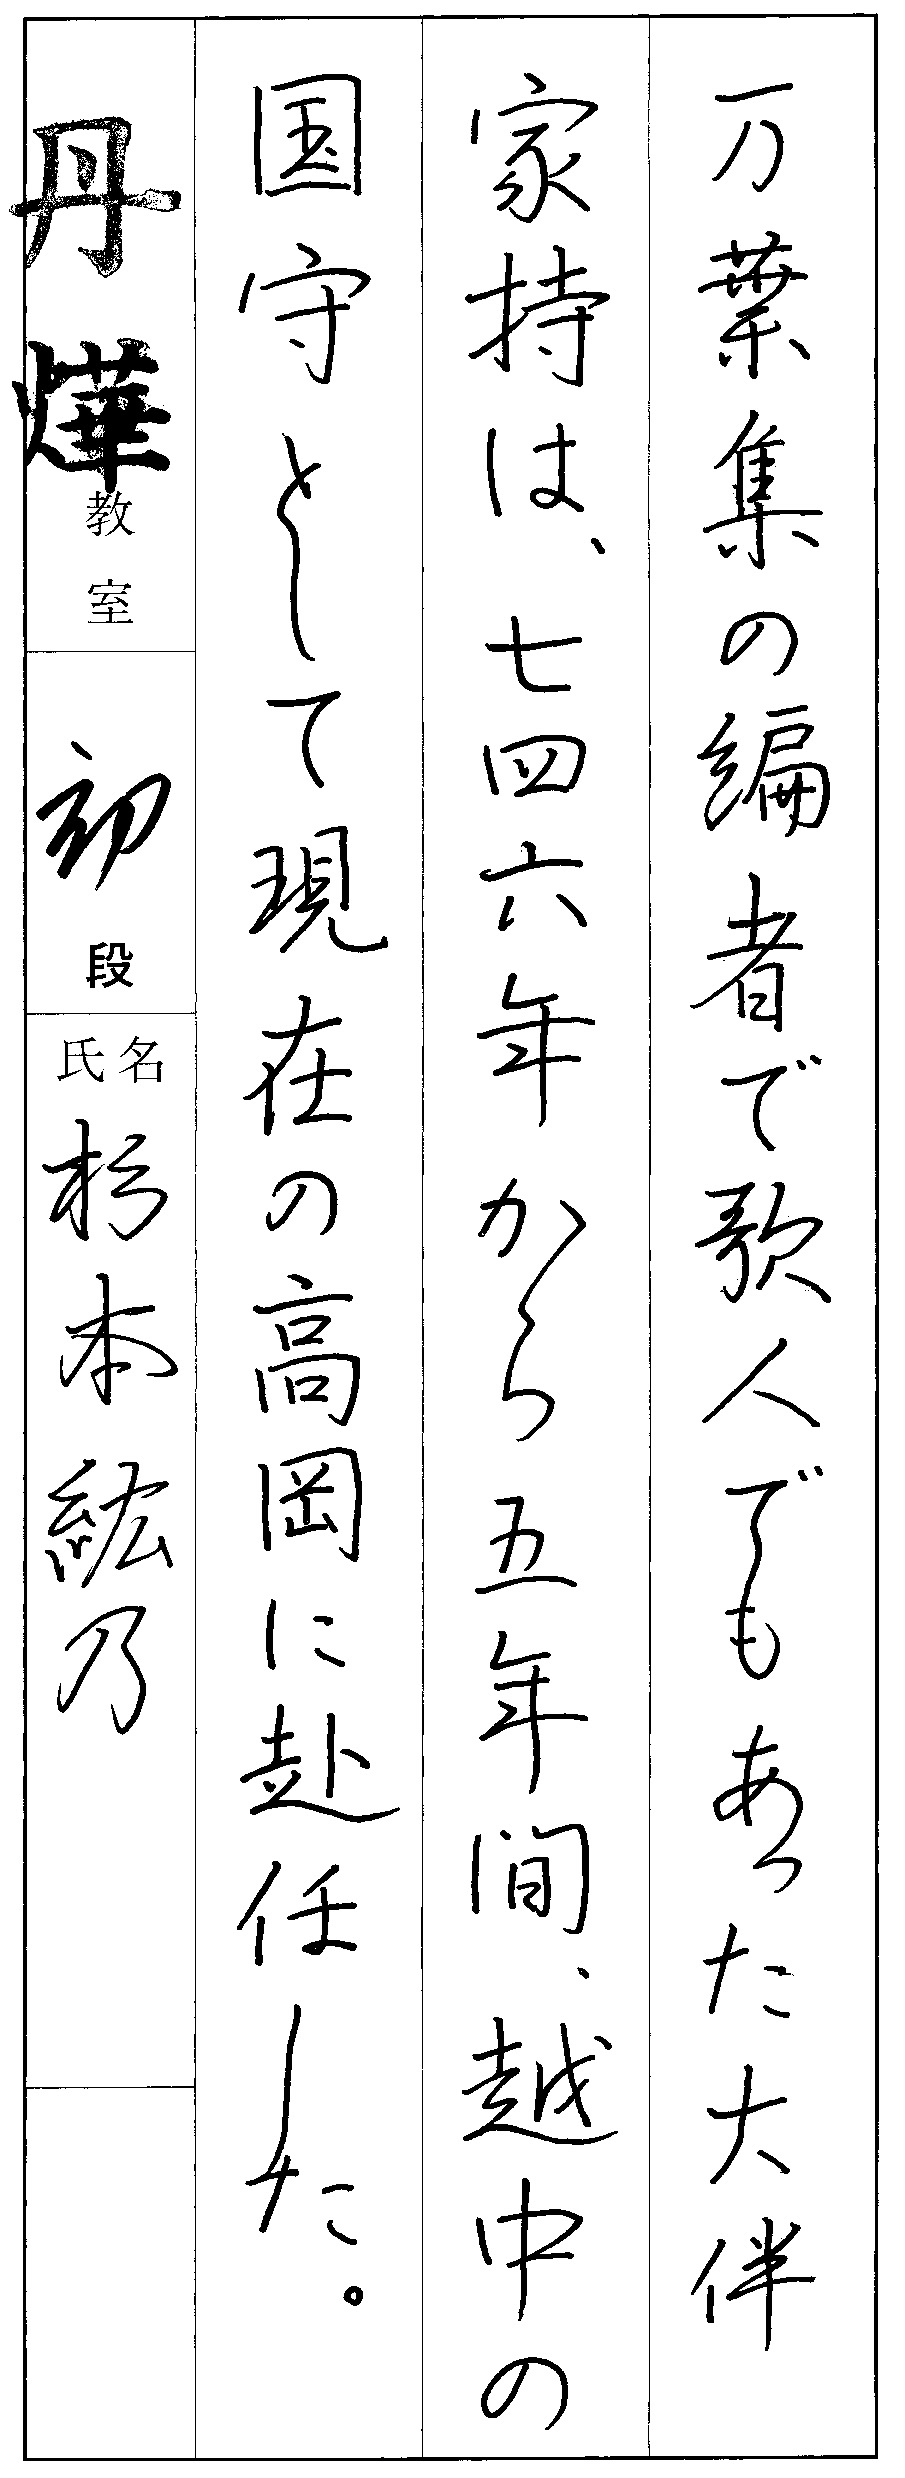 万葉集の編者で歌人でもあった大伴
家持は、七四六年から五年間、越中の
国守として現在の高岡に赴任した。
丹燁教室
初段
氏名
杉本紘乃